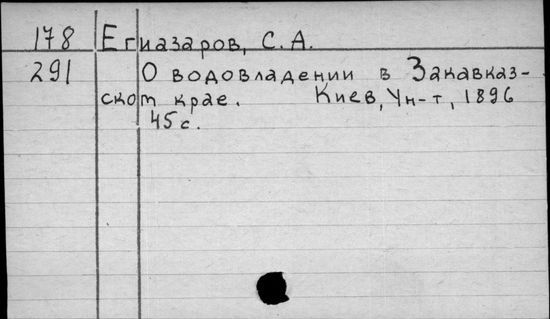 178 Егиазаров, С. А.
291 О водовладении в Закавказ-
ском крае. Киев, Ун-т, 1896
45 с.